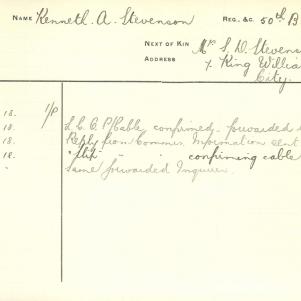 NAME Kenneth. A. Stevenson REG. &C. 50th B
NEXT OF KIN Mr S. D. Stevens
ADDRESS 7 King Willia
City.
18. 1/P
18. S. C. C. P/Cable confirmed. forwarded
18. Reply from Commrs. Information sent
18. " " confirming cable
" Same forwarded Inquirer.